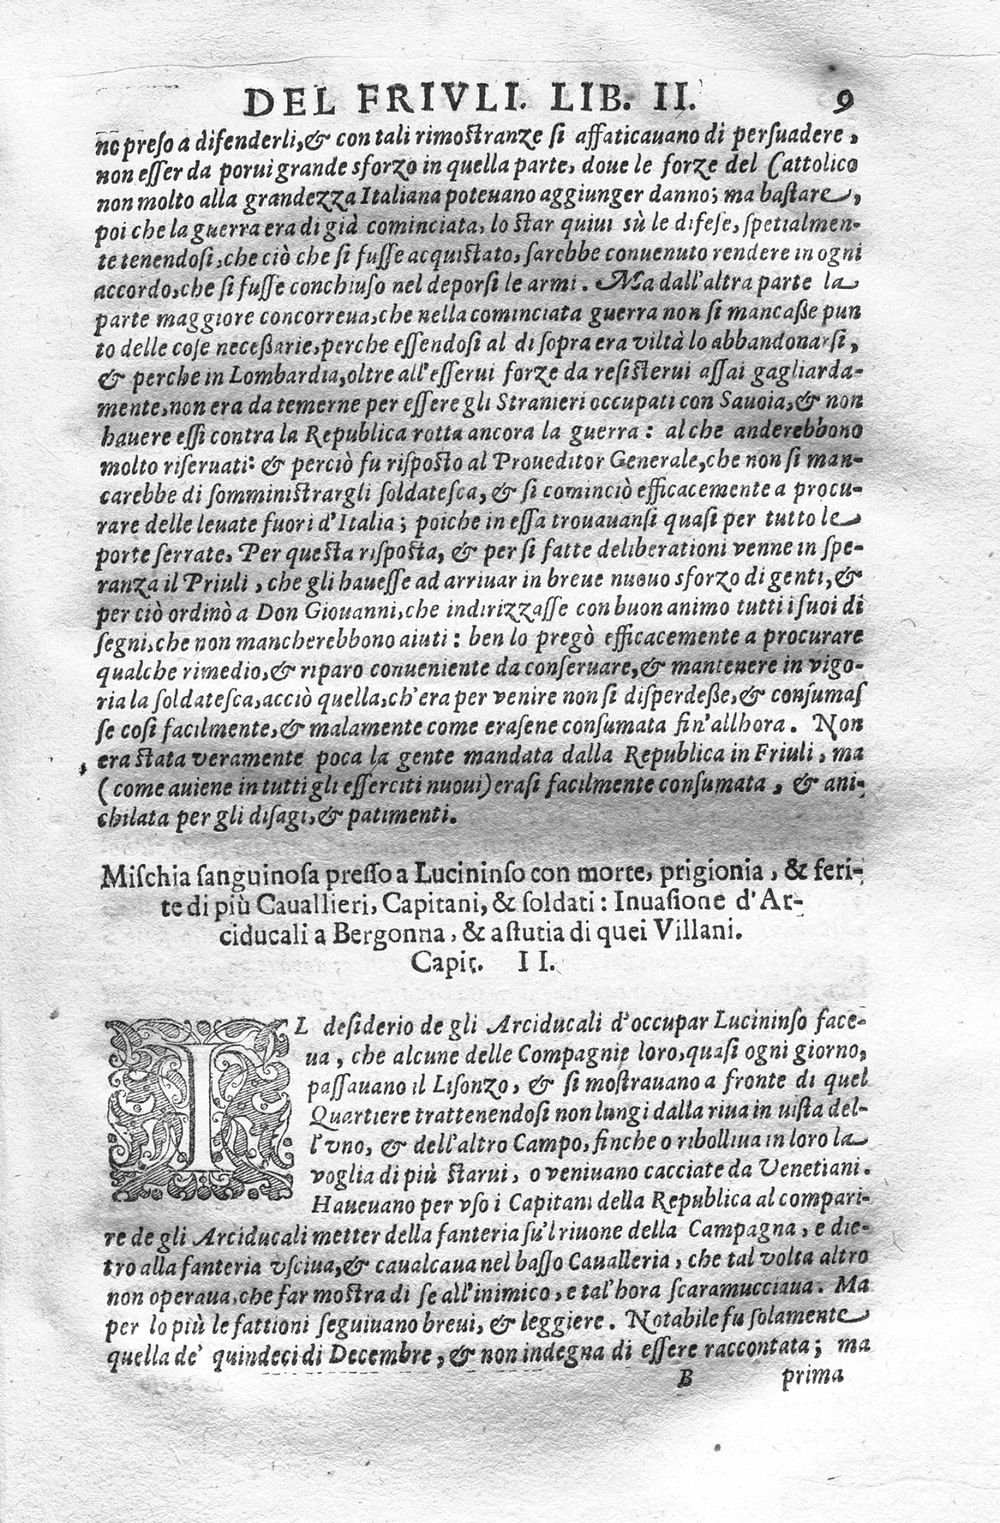 DEL FRIVLI. LIB. II. 9
no preſo a difenderli, & con tali rimoſtranze ſi affaticauano di perſuadere,
non eſſer da porui grande sforzo in quella parte, doue le forze del Cattolico
non molto alla grandezza Italiana poteuano aggiunger danno; ma baſtare,
poi che la guerra era di già cominciata, lo ſtar quiui sù le difeſe, ſpetialmen-
te tenendoſi, che ciò che ſi fuſſe acquiſtato, ſarebbe conuenuto rendere in ogni
accordo, che ſi fuſſe conchiuſo nel deporſi le armi. Ma dall'altra parte la
parte maggiore concorreua, che nella cominciata guerra non ſi mancaße pun
to delle coſe neceßarie, perche eſſendoſi al di ſopra era viltà lo abbandonarſi,
& perche in Lombardia, oltre all'eſſerui forze da reſiſterui aſſai gagliarda-
mente, non era da temerne per eſſere gli Stranieri occupati con Sauoia, & non
hauere eſſi contra la Republica rotta ancora la guerra: al che anderebbono
molto riſeruati: & perciò fu riſpoſto al Proueditor Generale, che non ſi man-
carebbe di ſomminiſtrargli ſoldateſca, & ſi cominciò efficacemente a procu-
rare delle leuate fuori d'Italia; poiche in eſſa trouauanſi quaſi per tutto le
porte ſerrate. Per queſta riſpoſta, & per ſi fatte deliberationi venne in ſpe-
ranza il Priuli, che gli haueſſe ad arriuar in breue nuouo sforzo di genti, &
per ciò ordinò a Don Giouanni, che indirizzaſſe con buon animo tutti i ſuoi di
ſegni, che non mancherebbono aiuti: ben lo pregò efficacemente a procurare
qualche rimedio, & riparo conueniente da conſeruare, & mantenere in vigo-
ria la ſoldateſca, acciò quella, ch'era per venire non ſi diſperdeße, & conſumaſ
ſe coſi facilmente, & malamente come eraſene conſumata fin'allhora. Non
era ſtata veramente poca la gente mandata dalla Republica in Friuli, ma
(come auiene in tutti gli eſſerciti nuoui) eraſi facilmente conſumata, & ani-
chilata per gli diſagi, & patimenti.
Miſchia ſanguinoſa preſſo a Lucininſo con morte, prigionia, & feri-
te di più Cauallieri, Capitani, & ſoldati: Inuaſione d'Ar-
ciducali a Bergonna, & aſtutia di quei Villani.
Capit. II.
IL deſiderio de gli Arciducali d'occupar Lucininſo face-
ua, che alcune delle Compagnie loro, quaſi ogni giorno,
paſſauano il Liſonzo, & ſi moſtrauano a fronte di quel
Quartiere trattenendoſi non lungi dalla riua in viſta del-
l'vno, & dell'altro Campo, finche o ribolliua in loro la
voglia di più ſtarui, o veniuano cacciate da Venetiani.
Haueuano per vſo i Capitani della Republica al compari-
re de gli Arciducali metter della fanteria ſu'l riuone della Campagna, e die-
tro alla fanteria vſciua, & caualcaua nel baſſo Caualleria, che tal volta altro
non operaua, che far moſtra di ſe all'inimico, e tal'hora ſcaramucciaua. Ma
per lo più le fattioni ſeguiuano breui, & leggiere. Notabile fu ſolamente
quella de' quindeci di Decembre, & non indegna di eſſere raccontata; ma
B prima